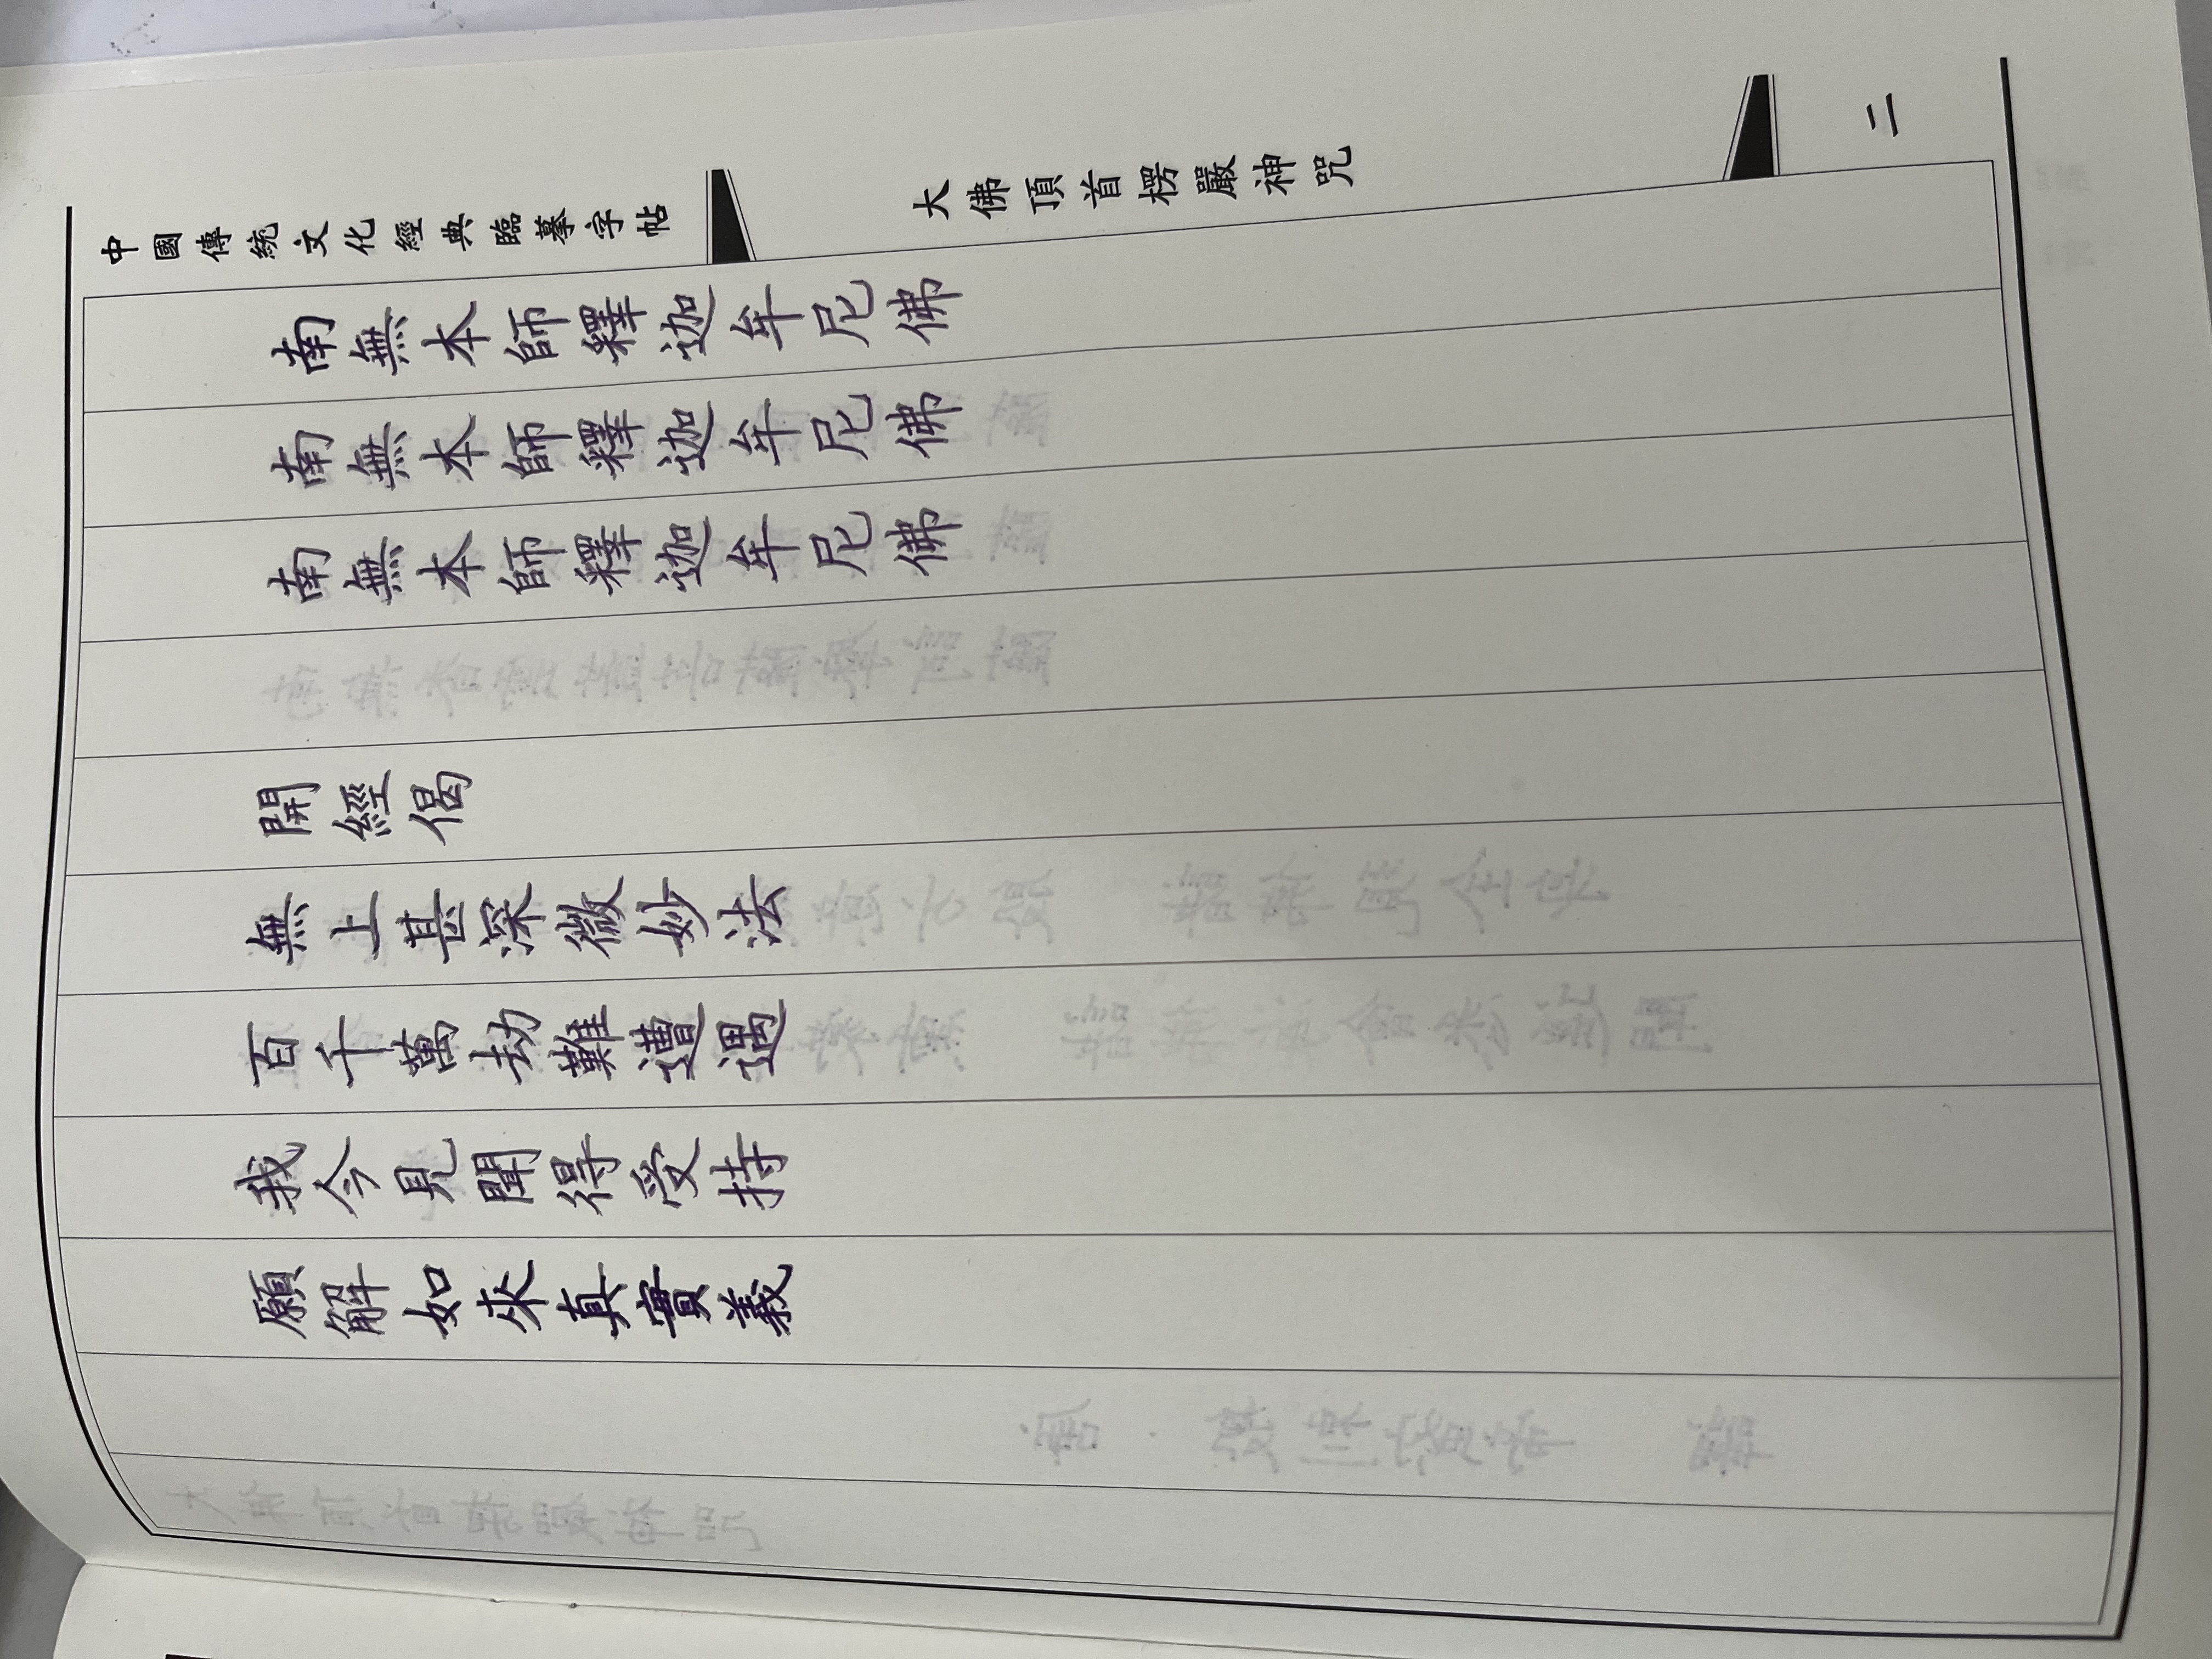 中國傳統文化經典臨摹字帖
大佛頂首楞嚴神咒
二
南無本師釋迦牟尼佛
南無本師釋迦牟尼佛
南無本師釋迦牟尼佛
開經偈
無上甚深微妙法
百千萬劫難遭遇
我今見聞得受持
願解如來真實義